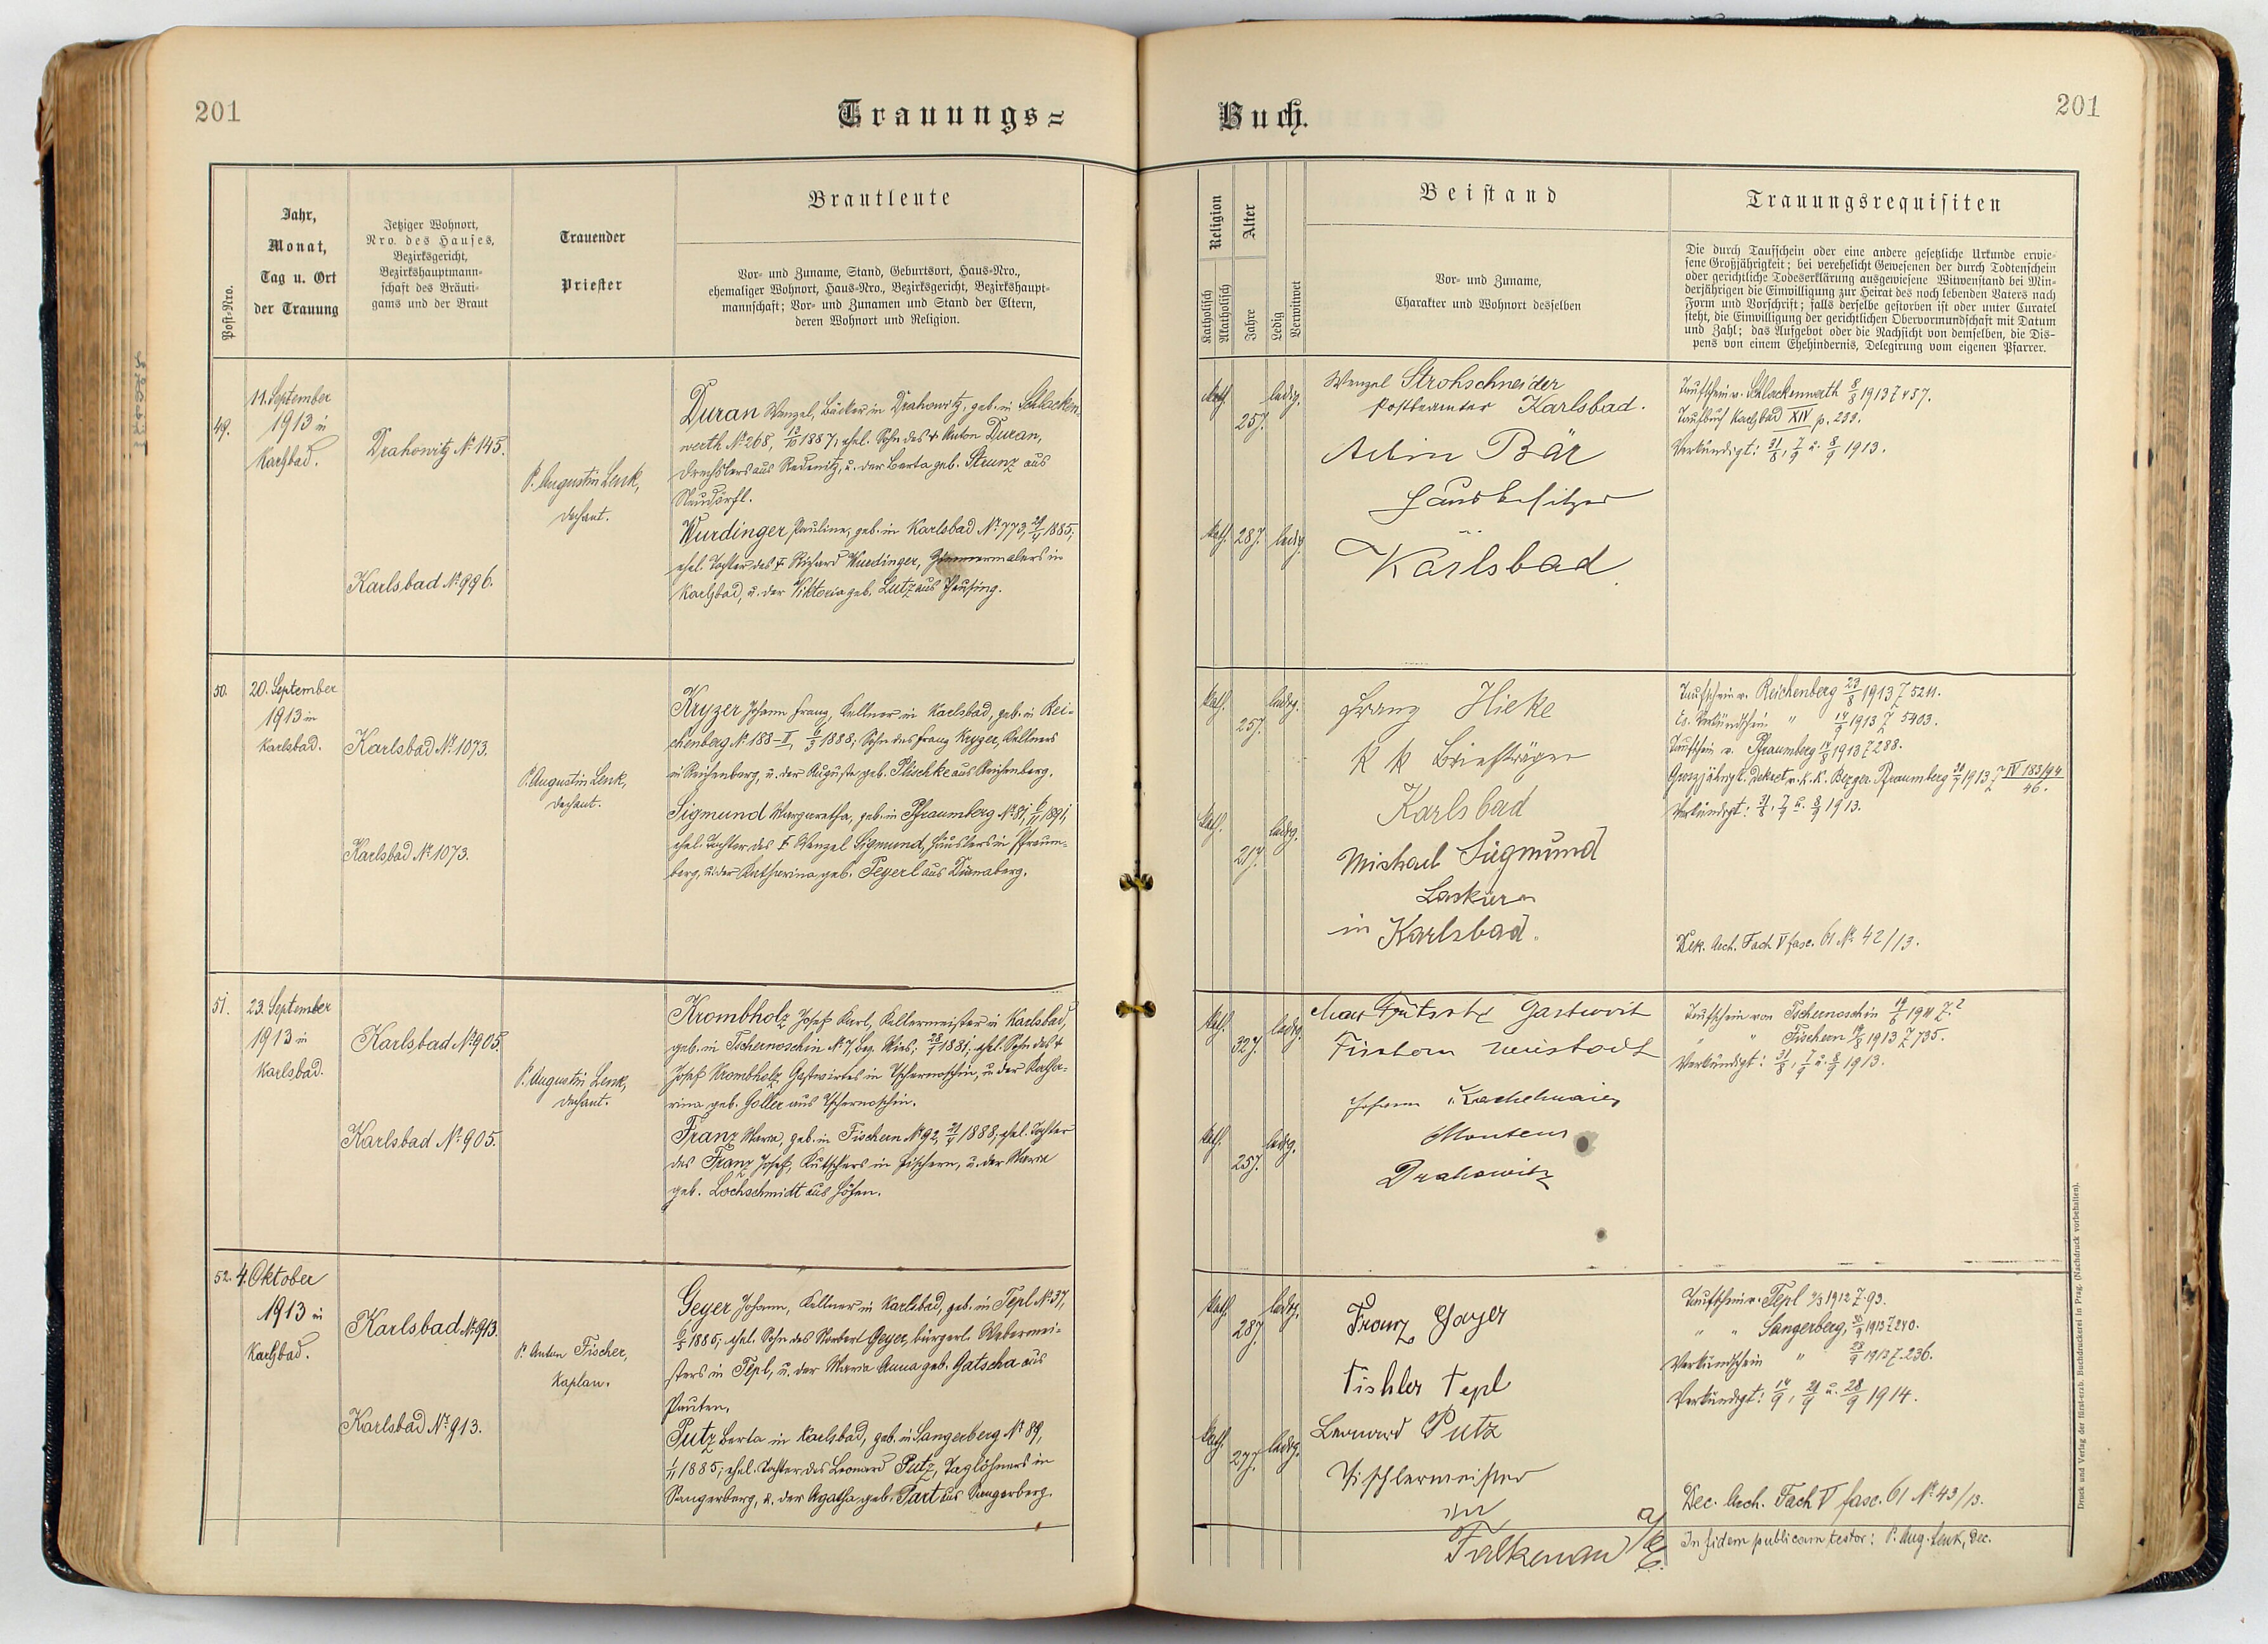 201
Trauungs=
Post-Nro.
Jahr,
Monat,
Tag u. Ort
der Trauung
Jetziger Wohnort,
Nro. des Hauses,
Bezirksgericht,
Bezirkshauptmann-
schaft des Bräuti-
gams und der Braut
Trauender
Priester
Brautleute
Vor- und Zuname, Stand, Geburtsort, Haus-Nro.,
ehemaliger Wohnort, Haus-Nro., Bezirksgericht, Bezirkshaupt-
mannschaft; Vor- und Zunamen und Stand der Eltern,
deren Wohnort und Religion.
49.
11. September
1913 in
Karlsbad.
Drahowitz № 145.
Karlsbad № 996.
P. Augustin Lenk,
Dechant.
Duran Wenzel, Bäcker in Drahowitz, geb. in Schlacken-
werth № 268, 13/10 1887, ehel. Sohn des † Anton Duran,
Drechslers aus Redenitz, u. der Berta geb. Strunz aus
Neudörfl.
Wurdinger Pauline, geb. in Karlsbad № 773, 1885;
ehel. Tochter des † Richard Wurdinger, Zimmermalers in
Karlsbad, u. der Viktoria geb. Lutz aus Theusing.
50.
20. September
1913 in
Karlsbad.
Karlsbad № 1073.
Karlsbad № 1073.
P. Augustin Lenk,
Dechant.
Kryzer Johann Franz, Kellner in Karlsbad, geb. in Rei-
chenberg № 188-II, 6/3 1888; Sohn des Franz Kryzer, Kellners
in Reichenberg, u. der Augusta geb. Plischke aus Reichenberg.
Sigmund Margaretha, geb. in Pfraumberg № 81, 1891,
ehel. Tochter des † Wenzel Sigmund, Häuslers in Pfraum-
berg, u. der Katharina geb. Peyerl aus
51.
23. September
1913 in
Karlsbad.
Karlsbad № 905.
Karlsbad № 905.
P. Augustin Lenk,
Dechant.
Krombholz Josef Karl, Kellermeister in Karlsbad,
geb. in Tschernoschin № 7, Bez. Mies; 1881; ehel. Sohn des †
Josef Krombholz, Gastwirtes in Tschernoschin, u. der Katha-
rina geb. Goller aus Tschernoschin.
Franz Maria, geb. in Fischern № 92, 1888, ehel. Tochter
des Franz Josef, Kutschers in Fischern, u. der Maria
geb. Lochschmidt aus Höfen.
52.
4. Oktober
1913 in
Karlsbad.
Karlsbad № 913.
Karlsbad № 913.
P. Anton Fischer,
Kaplan.
Geyer Johann, Kellner in Karlsbad, geb. in Tepl № 37,
1885; ehel. Sohn des Norbert Geyer, bürgerl. Webermei-
sters in Tepl, u. der Maria Anna geb. Gatscha aus
Pauten.
Putz Berta in Karlsbad, geb. in Sangerberg № 89,
1885; ehel. Tochter des Leonard Putz, Taglöhners in
Sangerberg, u. der Agatha geb. Part aus Sangerberg.
Buch.
201
Religion
Katholisch
Akatholisch
Alter
Jahre
Ledig
Verwitwet
Beistand
Vor- und Zuname,
Charakter und Wohnort desselben
Trauungsrequisiten
Die durch Taufschein oder eine andere gesetzliche Urkunde erwie-
sene Großjährigkeit; bei verehelicht Gewesenen der durch Todtenschein
oder gerichtliche Todeserklärung ausgewiesene Witwenstand bei Min-
derjährigen die Einwilligung zur Heirat des noch lebenden Vaters nach
Form und Vorschrift; falls derselbe gestorben ist oder unter Curatel
steht, die Einwilligung der gerichtlichen Obervormundschaft mit Datum
und Zahl; das Aufgebot oder die Nachsicht von demselben, die Dis-
pens von einem Ehehindernis, Delegirung vom eigenen Pfarrer.
kath.
25 J.
ledig.
kath.
28 J.
ledig.
Wenzel Strohschneider
Postbeamter Karlsbad.
Bär
Hausbesitzer
Karlsbad
Taufschein v. Schlackenwerth 8/8 1913 Z 457.
Taufbuch Karlsbad XIV p. 233.
Verkündigt: 31/8, 7/9 u. 8/9 1913.
kath.
25 J.
ledig.
kath.
21 J.
ledig.
Franz Hieke
k k Briefträger
Karlsbad
Michael Sigmund
in Karlsbad.
Taufschein v. Reichenberg 23/8 1913 Z 5211.
Verkündschein " 1913 Z 5403.
Taufschein v. Pfraumberg 1913 Z 288.
Grosjährigk. Dekret v. K. K. Bezger. Pfraumberg 1913 Z IV 183/94
46.
Verkündigt: 31/8, 7/9 u. 8/9 1913.
Dek. Arch. Fach V fasc. 61 № 42/13.
kath.
32 J.
ledig.
kath.
25 J.
ledig.
Gastwirt
Fischern
Johann
Monteur
Drahowitz
Taufschein von Tschernoschin
" " Fischern 1913 Z 735.
Verkündigt: 31/8, 7/9 u. 8/9 1913.
kath.
28 J.
ledig.
kath.
27 J.
ledig.
Franz Gayer
Tishler Tepl
Leonard Putz
Tischlermeister
in
Falkenau a/E.
Taufschein v. Tepl 1912 Z. 93.
" " Sangerberg, 1913 Z 240.
Verkündschein " 1913 Z. 236.
Verkündigt: 14/9, 21/9 u. 28/9 1914.
Dec. Arch. Fach V fasc. 61 № 43/13.
In fidem publicam testor: P. Aug. Lenk, Dec.
Druck und Verlag der fürst-erzb. Buchdruckerei in Prag. (Nachdruck vorbehalten).